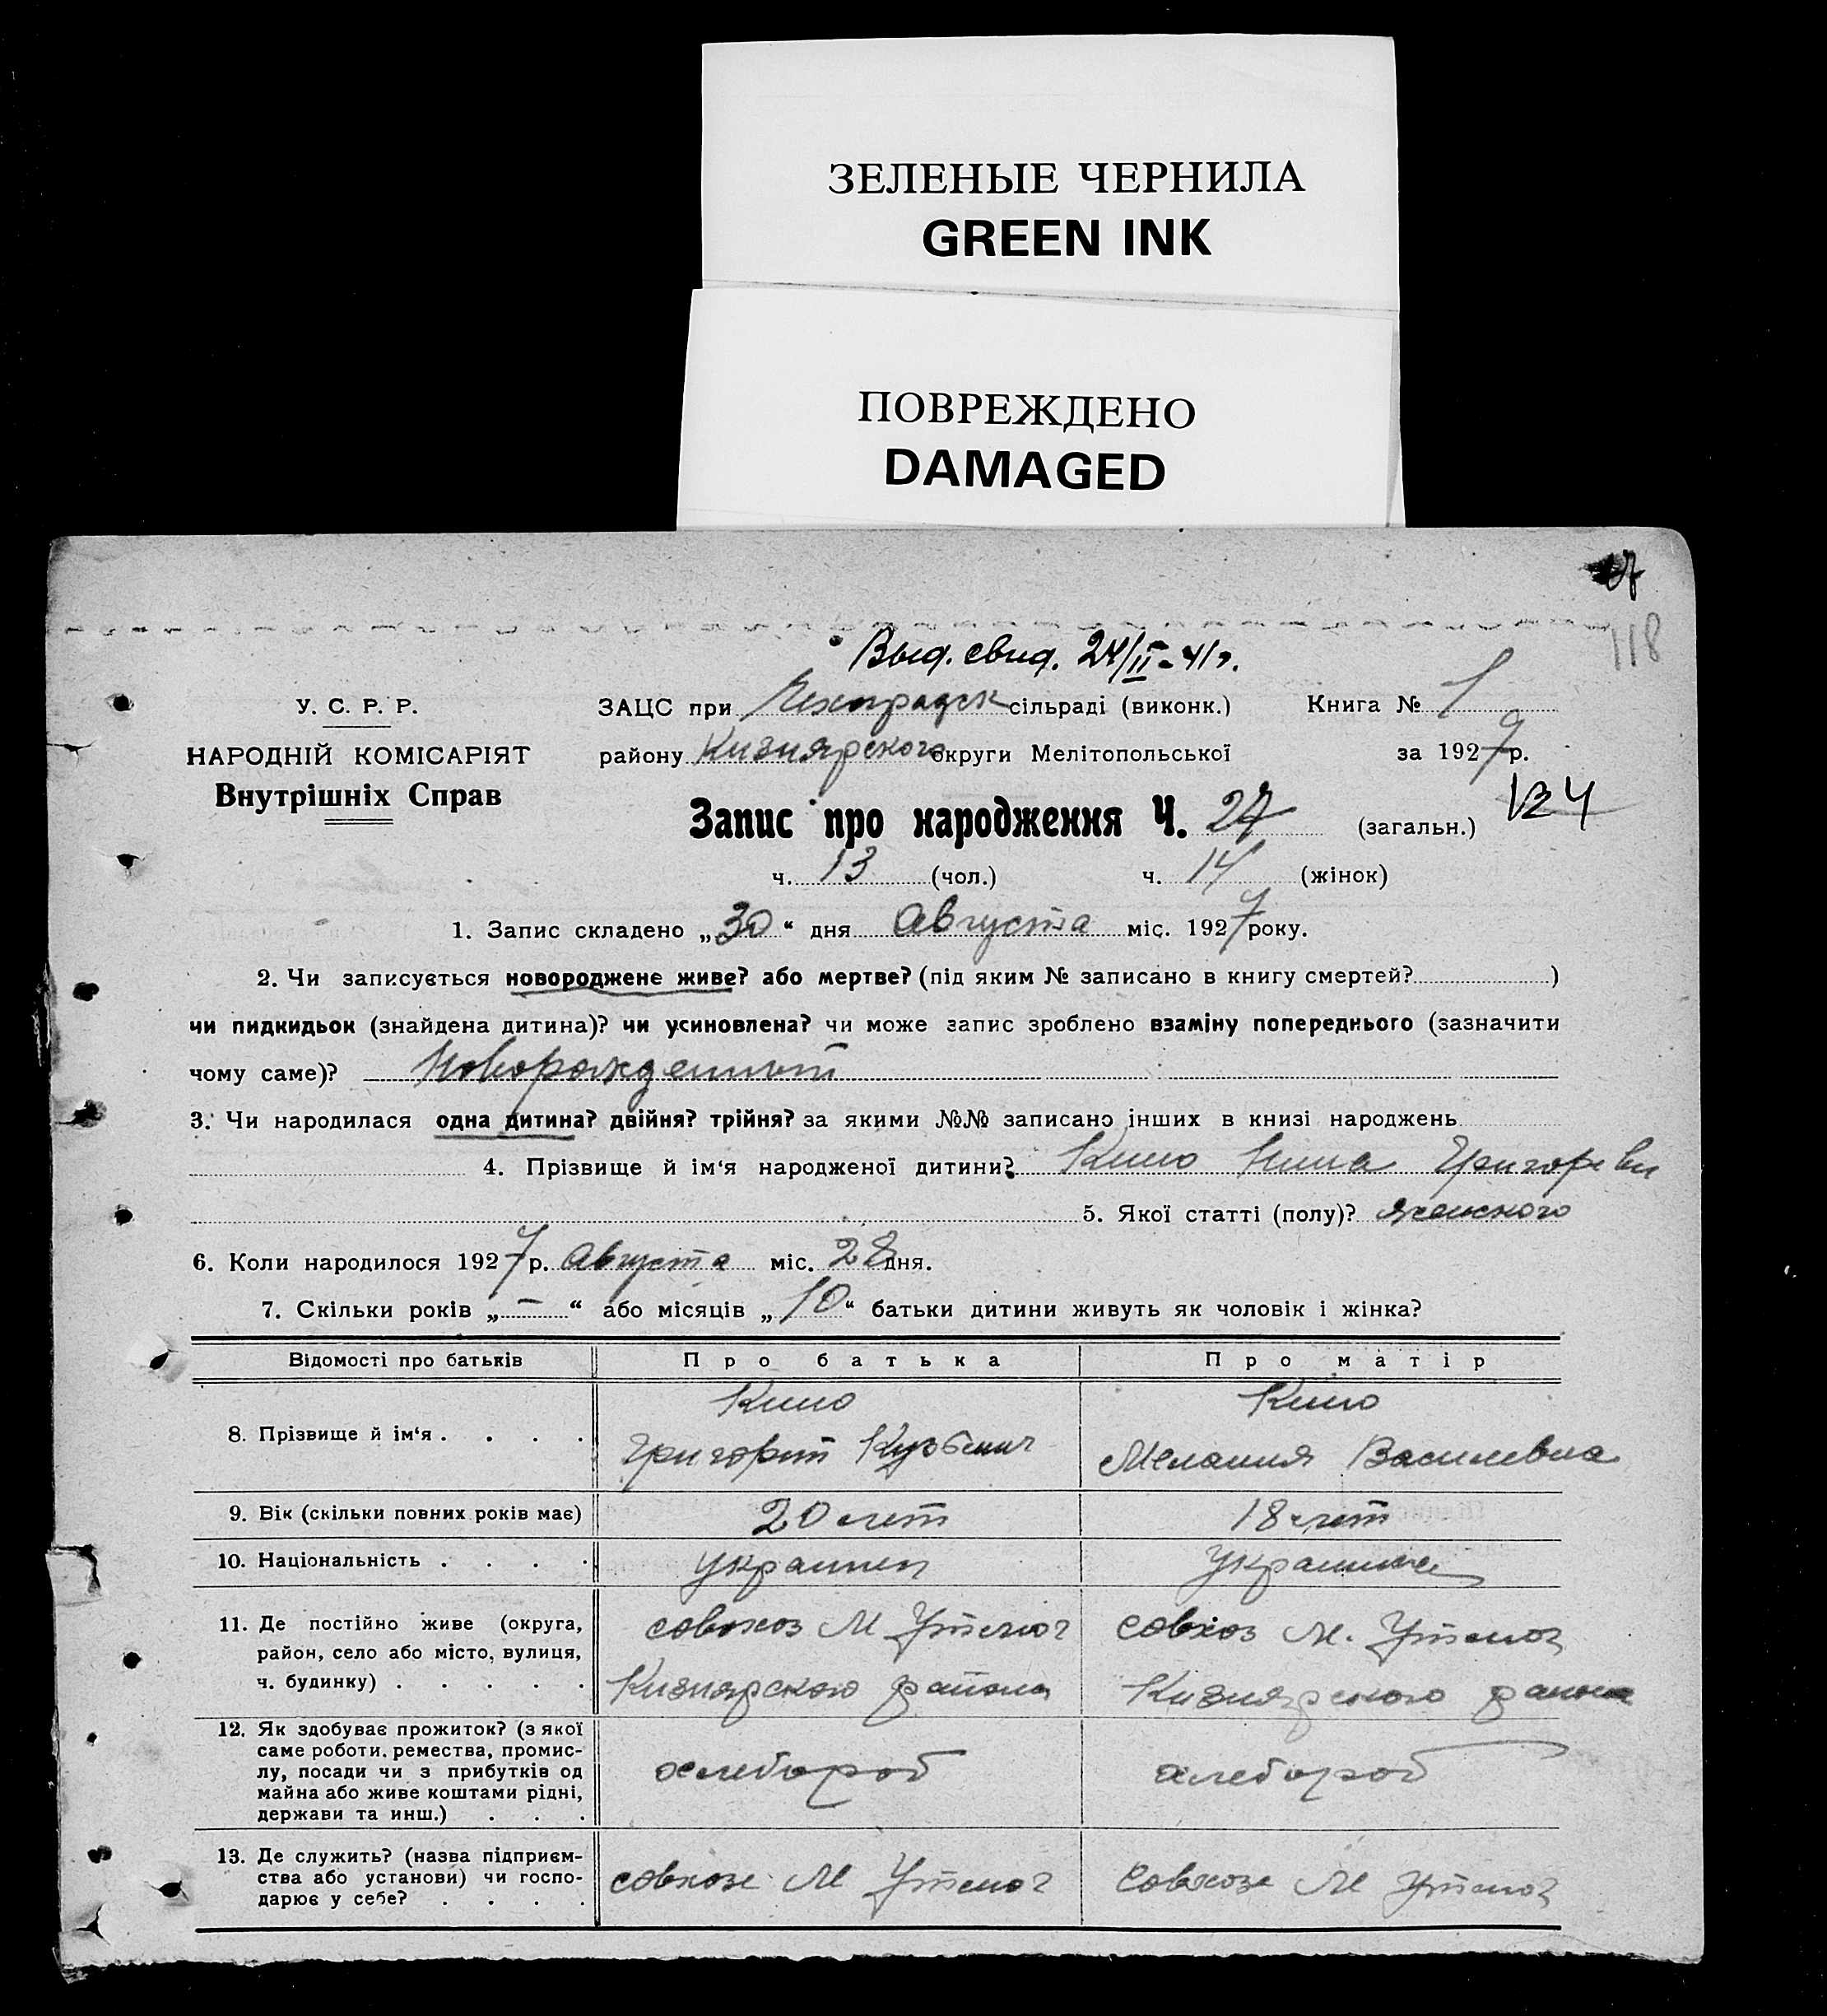 ЗЕЛЕНЫЕ ЧЕРНИЛА
GREEN INK
ПОВРЕЖДЕНО
DAMAGED
118
Выд. свид. 24/II-41г.
У. С. Р. Р.
ЗАЦС при сільраді (виконк.) Книга № 1
НАРОДНІЙ КОМІСАРІЯТ
району Кизиярского округи Мелітопольської за 1927 р.
Внутрішніх Справ
Запис про народження Ч. 27 (загальн.)
ч. 13 (чол.) ч. 14 (жінок)
1. Запис складено „30“ дня Августа міс. 1927 року.
2. Чи записується новороджене живе? або мертве? (під яким № записано в книгу смертей? )
чи пидкидьок (знайдена дитина)? чи усиновлена? чи може запис зроблено взаміну попереднього (зазначити
чому саме)? Новорожденный
3. Чи народилася одна дитина? двійня? трійня? за якими №№ записано інших в книзі народжень
4. Прізвище й ім‘я народженої дитини? Кино Нина Григоревн
5. Якої статті (полу)? женского
6. Коли народилося 1927 р. Августа міс. 28 дня.
7. Скільки років „ – “ або місяців „10“ батьки дитини живуть як чоловік і жінка?
Відомості про батьків Про батька Про матір
8. Прізвище й ім‘я . . . . Кино Кино
Григорий Кузьмич Мелания Василевна
9. Вік (скільки повних років має) 20 лет 18 лет
10. Національність . . . . украинец украинка
11. Де постійно живе (округа, район, село або місто, вулиця, ч. будинку) . . . . . совхоз М Утлюг совхоз М. Утлюг
Кизиярского района Кизиярского района
12. Як здобуває прожиток? (з якої
саме роботи, ремества, промис-
лу, посади чи з прибутків од
майна або живе коштами рідні,
держави та инш.) . . .
хлебороб хлебороб
13. Де служить? (назва підприєм-
ства або установи) чи госпо-
дарює у себе? . . . .
совхозе М Утлюг совхозе М Утлюг